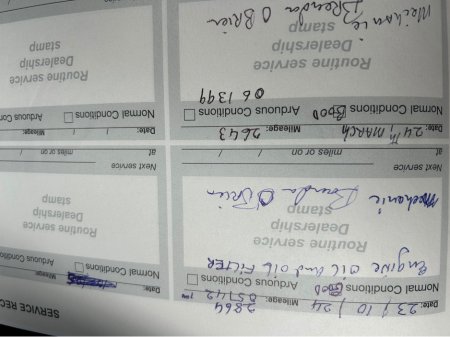 SERVICE REC
Date: 23/10/24 Mileage: 2864
Normal Conditions Arduous Conditions
Engine oil and oil FILTER
Routine service
Dealership
stamp
Mechanic Brenda O Brien
Next service
at miles or on / /
Date: Mileage:
Normal Conditions Arduous Conditio
Routine service
Dealership
stamp
Next service
at miles or on /
Date: 24TH MARCH Mileage: 2643
Normal Conditions Arduous Conditions
061399
Routine service
Dealership
stamp
Mechanic Brenda O Brien
Date: / / Mileage:
Normal Conditions Arduous Con
Routine service
Dealership
stamp